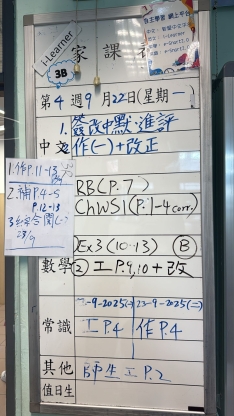 i-Learner
自主學習 網上平台
3B
家課
第4週9月22日(星期一)
中文
1. 簽改中默.進評
2. 作(一)+改正
1.作P.11-13
2.補P.4-5
P.12-13
3.綜合閱(一)
23/9
RB(P.7)
ChWS1(P.1-4 corr.)
數學
Ex3(10-13) B
② 工P.9,10+改
常識
-9-2025(二) 23-9-2025(二)
工P.4 作P.4
其他
師生工P.2
值日生